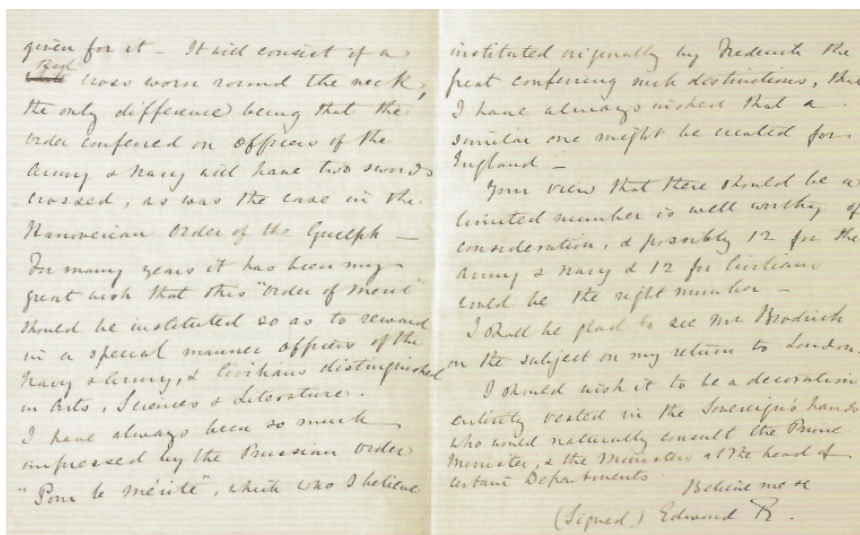 given for it - It will consist of a
Red
cross worn round the neck,
the only difference being that the
order conferred on officers of the
Army & Navy will have two swords
crossed, as was the case in the
Hanoverian Order of the Guelph —
For many years it has been my
great wish that this "Order of Merit"
should be instituted so as to reward
in a special manner officers of the
Navy & Army, & Civilians distinguished
in Arts, Sciences & Literature.
I have always been so much
impressed by the Prussian Order
"Pour le mérite", which was I believe
instituted originally by Frederick the
great conferring such distinctions, that
I have always wished that a
similar one might be created for
England —
Your view that there should be a
limited number is well worthy of
consideration, & possibly 12 for the
Army & Navy & 12 for Civilians
could be the right number —
I shall be glad to see Mr Brodrick
on the subject on my return to London.
I should wish it to be a decoration
entirely vested in the Sovereign's hands
who would naturally consult the Prime
Minister, & the Ministers at the head of
certain Departments
Believe me &c
(Signed) Edward R.